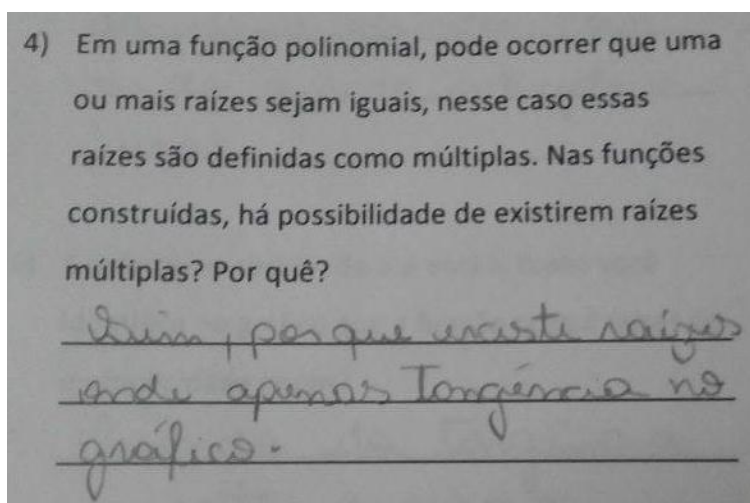 4) Em uma função polinomial, pode ocorrer que uma
ou mais raízes sejam iguais, nesse caso essas
raízes são definidas como múltiplas. Nas funções
construídas, há possibilidade de existirem raízes
múltiplas? Por quê?
Sim, por que existe raízes
onde apenas Tangência no
gráfico.